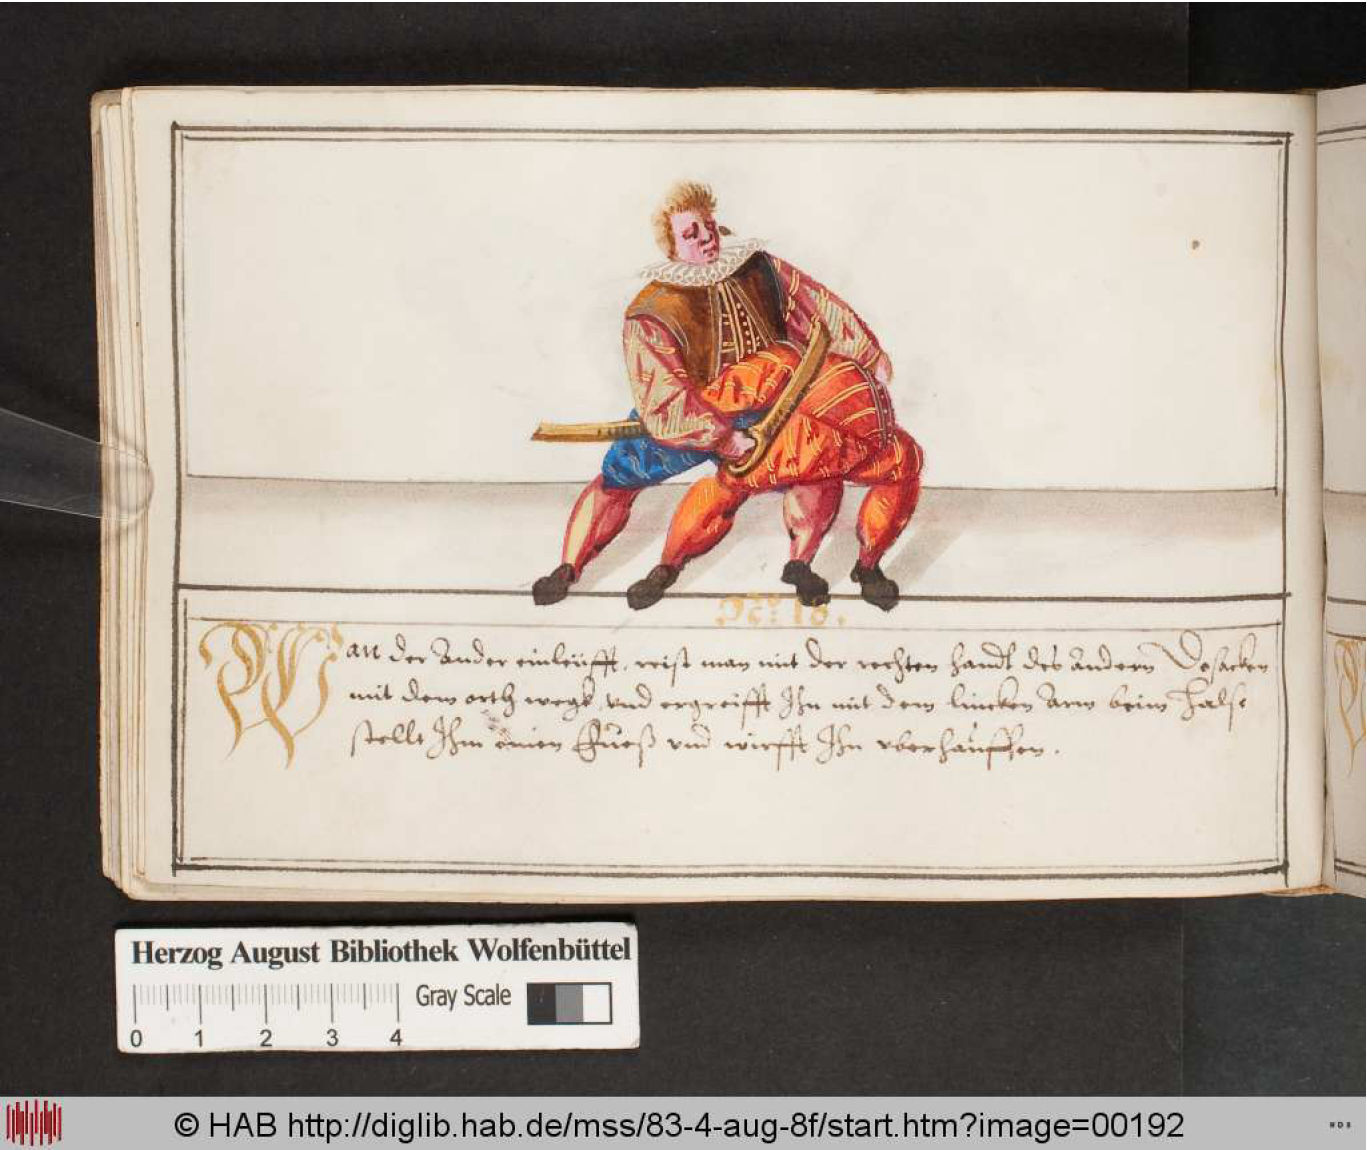 No: 18.
Wan der Ander einleüfft, reist man mit der rechten handt des Andern Dosacken
mit dem orth wegk, vnd ergreifft Ihn mit dem lincken Arm beim Halse
stellt Ihm einen Fueß vnd wirfft Ihn vberhauffen.
Herzog August Bibliothek Wolfenbüttel
Gray Scale
0 1 2 3 4
© HAB http://diglib.hab.de/mss/83-4-aug-8f/start.htm?image=00192